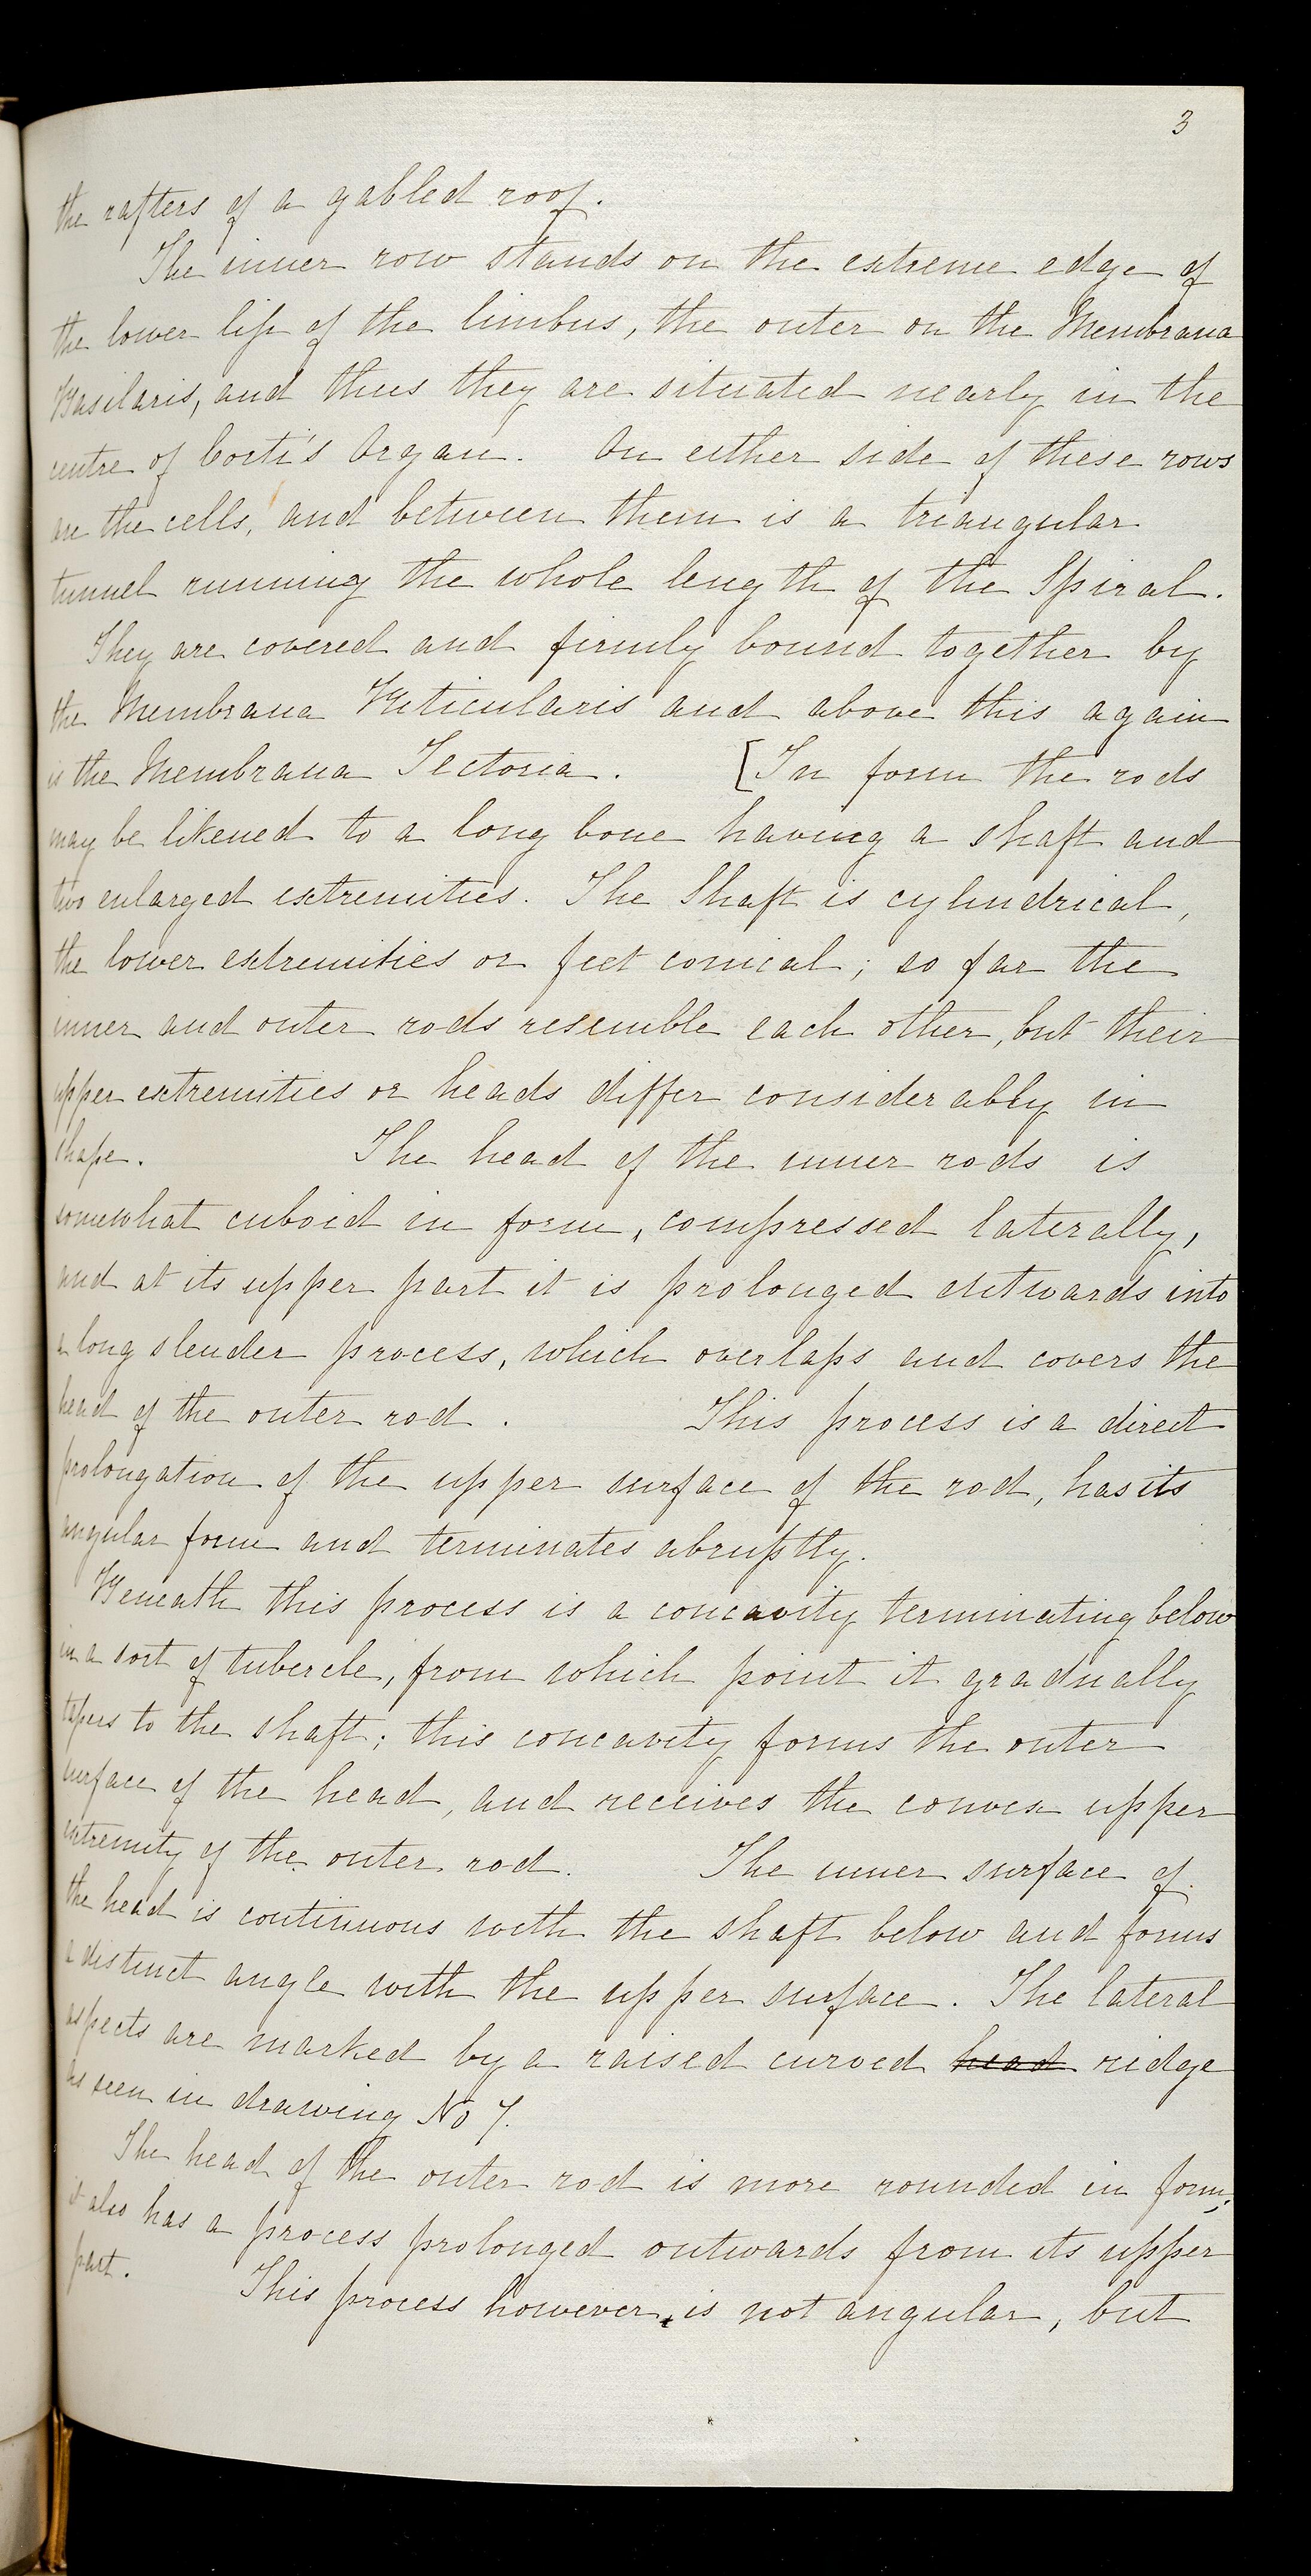 3
the rafters of a gabled roof.
The inner row stands on the extreme edge of
the lower lip of the limbus, the outer on the Membrana
Basilaris, and thus they are situated nearly in the
centre of Corti's Organ. On either side of these rows
are the cells, and between them is a triangular
tunnel running the whole length of the Spiral.
They are covered and firmly bound together by
the Membrana Reticularis and above this again
is the Membrana Tectoria. [In form the rods
may be likened to a long bone having a shaft and
two enlarged extremities. The Shaft is cylindrical,
the lower extremities or feet conical; so far the
inner and outer rods resemble each other, but their
upper extremities or heads differ considerably in
shape. The head of the inner rods is
somewhat cuboid in form, compressed laterally,
and at its upper part it is prolonged outwards into
a long slender process, which overlaps and covers the
head of the outer rod. This process is a direct
prolongation of the upper surface of the rod, has its
angular form and terminates abruptly.
Beneath this process is a concavity terminating below
in a sort of tubercle, from which point it gradually
tapers to the shaft; this concavity forms the outer
surface of the head, and receives the convex upper
extremity of the outer rod. The inner surface of
the head is continuous with the shaft below and forms
a distinct angle with the upper surface. The lateral
aspects are marked by a raised curved head ridge
as seen in drawing No 7.
The head of the outer rod is more rounded in form;
it also has a process prolonged outwards from its upper
part. This process however, is not angular, but